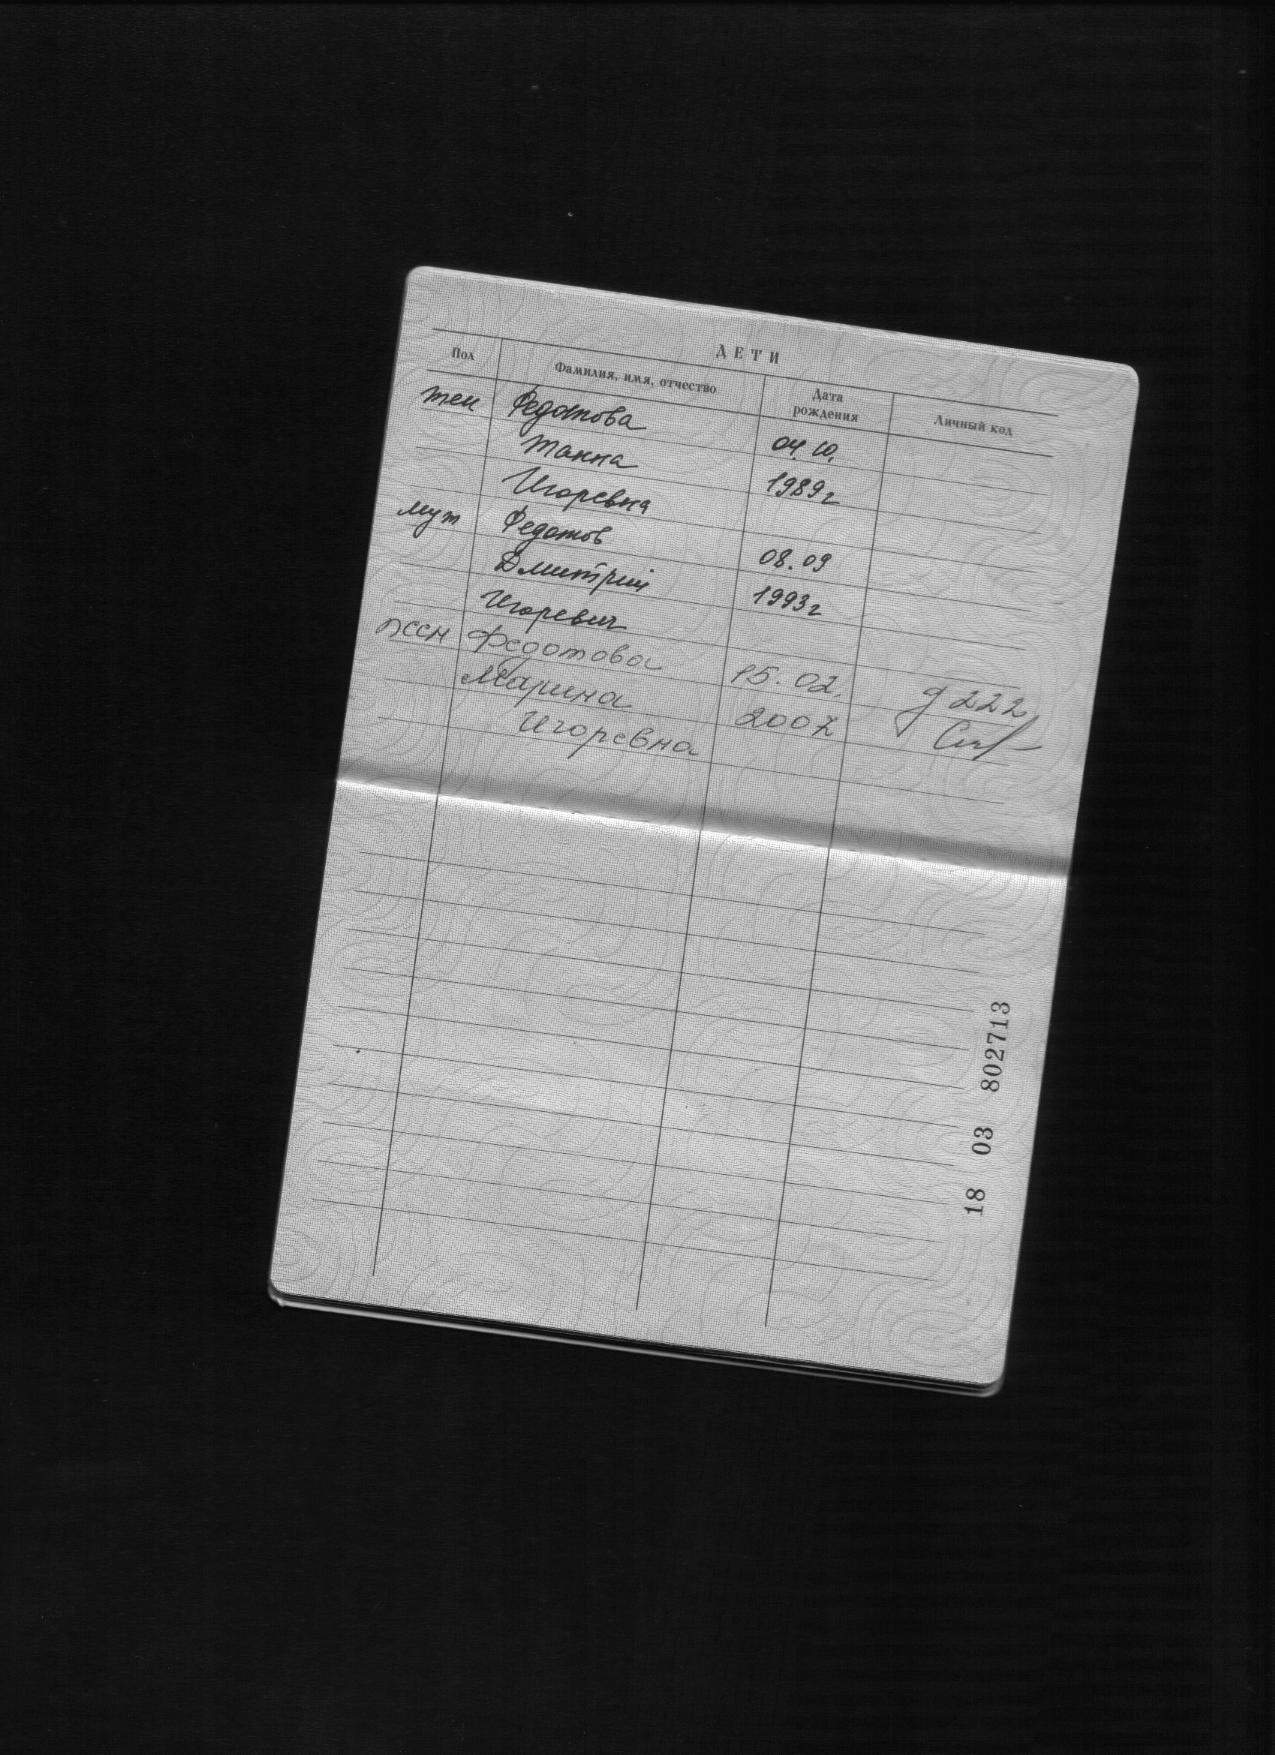 ДЕТИ
Пол Фамилия, имя, отчество Дата рождения Личный код
жен Федотова 04.10.
Жанна 1989г
Игоревна
муж Федотов 08.09
Дмитрий 1993г
Игоревич
жен Федотова 15.02.
Марина 2007 222
Игоревна
18 03 802713